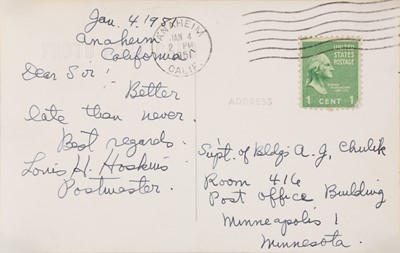 Jan. 4. 1951
Anaheim
California
Dear Sir!
Better
late than never.
Best regards.
Louis H. Hoskins
Postmaster.
ANAHEIM
JAN 4
2 PM
1951
CALIF.
UNITED STATES
POSTAGE
1 CENT 1
ADDRESS
Supt. of Bldgs A. J. Chulik
Room 416
Post Office Building
Minneapolis 1
Minnesota.